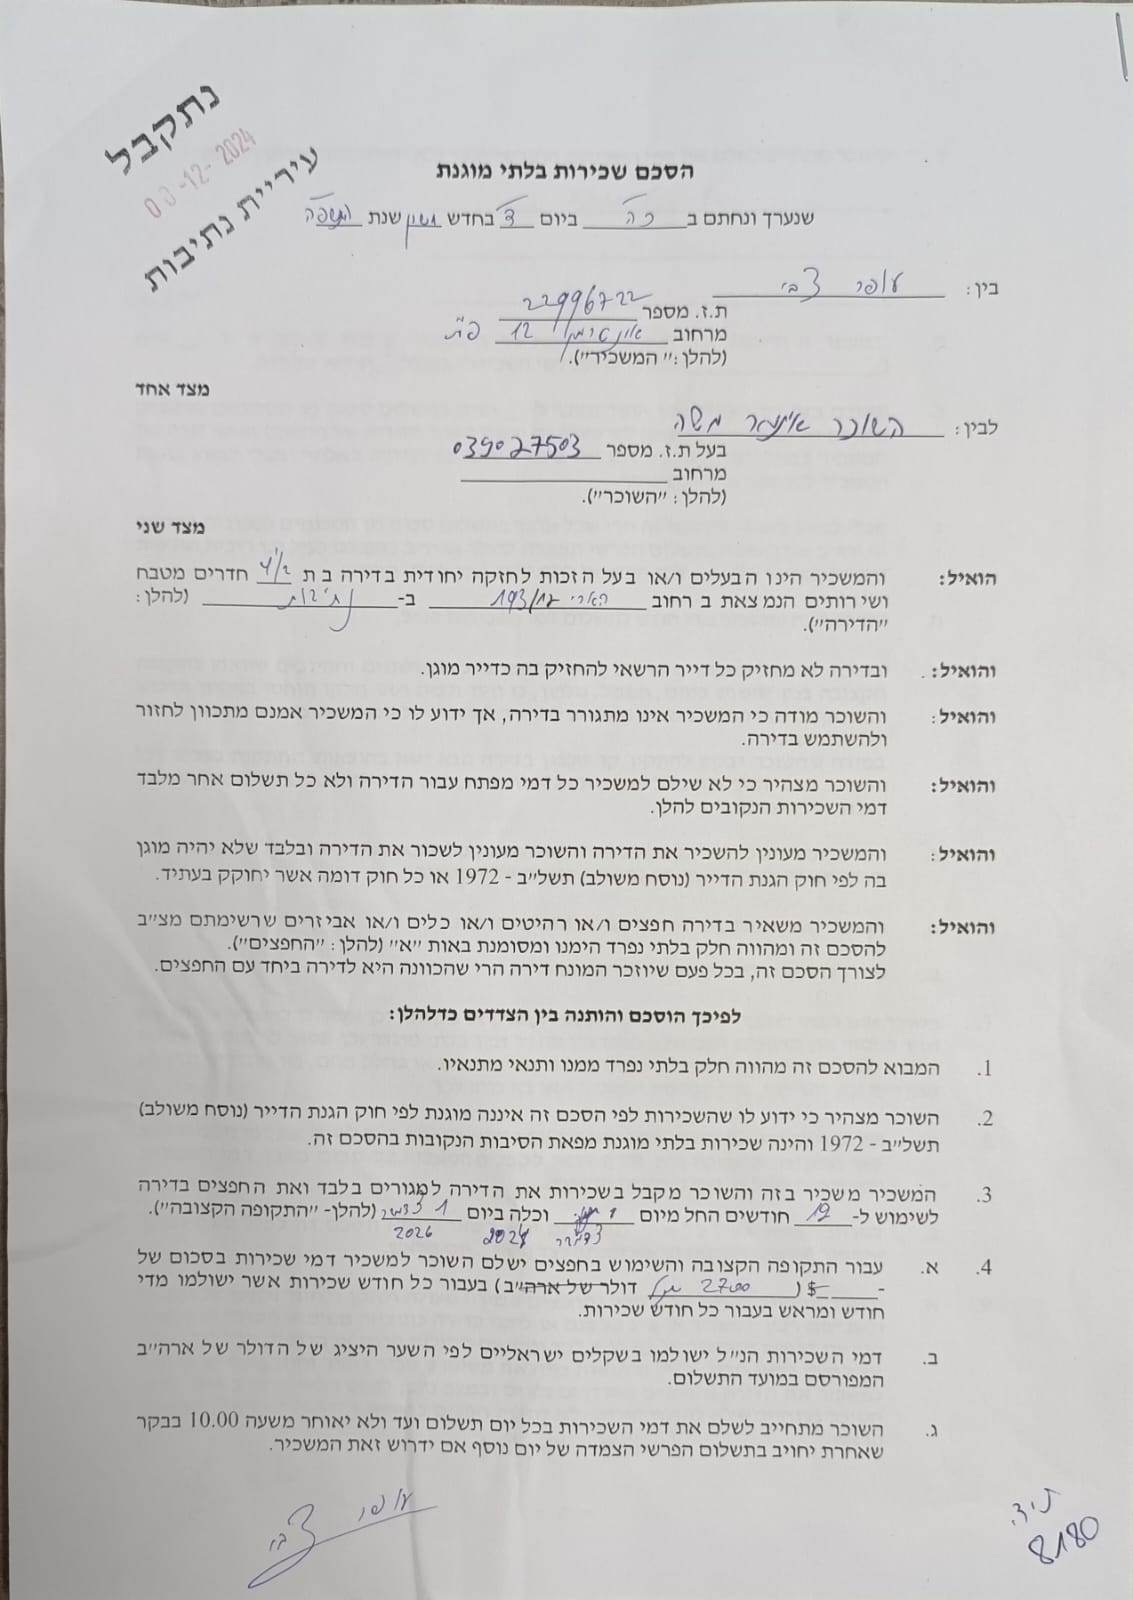 נתקבל
-12-2024
עיריית נתיבות
הסכם שכירות בלתי מוגנת
שנערך ונחתם ב כה ביום ד' בחדש חשון שנת התשפה
בין: עופר צבי
ת.ז. מספר 22996722
מרחוב 12 פ"ת
(להלן: "המשכיר").
מצד אחד
לבין: השוכר איתמר משה
בעל ת.ז. מספר 039027503
מרחוב
(להלן: "השוכר").
מצד שני
הואיל: והמשכיר הינו הבעלים ו/או בעל הזכות לחזקה יחודית בדירה בת חדרים מטבח
ושירותים הנמצאת ברחוב הארי 193/17 ב- נתיבות (להלן:
"הדירה").
והואיל: ובדירה לא מחזיק כל דייר הרשאי להחזיק בה כדייר מוגן.
והואיל: והשוכר מודה כי המשכיר אינו מתגורר בדירה, אך ידוע לו כי המשכיר אמנם מתכוון לחזור
ולהשתמש בדירה.
והואיל: והשוכר מצהיר כי לא שילם למשכיר כל דמי מפתח עבור הדירה ולא כל תשלום אחר מלבד
דמי השכירות הנקובים להלן.
והואיל: והמשכיר מעונין להשכיר את הדירה והשוכר מעונין לשכור את הדירה ובלבד שלא יהיה מוגן
בה לפי חוק הגנת הדייר (נוסח משולב) תשל"ב - 1972 או כל חוק דומה אשר יחוקק בעתיד.
והואיל: והמשכיר משאיר בדירה חפצים ו/או רהיטים ו/או כלים ו/או אביזרים שרשימתם מצ"ב
להסכם זה ומהווה חלק בלתי נפרד הימנו ומסומנת באות "א" (להלן: "החפצים").
לצורך הסכם זה, בכל פעם שיוזכר המונח דירה הרי שהכוונה היא לדירה ביחד עם החפצים.
לפיכך הוסכם והותנה בין הצדדים כדלהלן:
1. המבוא להסכם זה מהווה חלק בלתי נפרד ממנו ותנאי מתנאיו.
2. השוכר מצהיר כי ידוע לו שהשכירות לפי הסכם זה איננה מוגנת לפי חוק הגנת הדייר (נוסח משולב)
תשל"ב - 1972 והינה שכירות בלתי מוגנת מפאת הסיבות הנקובות בהסכם זה.
3. המשכיר משכיר בזה והשוכר מקבל בשכירות את הדירה למגורים בלבד ואת החפצים בדירה
לשימוש ל- 12 חודשים החל מיום 1 וכלה ביום 1 דצמבר (להלן- "התקופה הקצובה").
דצמבר 2024 2026
4. א. עבור התקופה הקצובה והשימוש בחפצים ישלם השוכר למשכיר דמי שכירות בסכום של
-$ ( 2700 שקל דולר של ארה"ב) בעבור כל חודש שכירות אשר ישולמו מדי
חודש ומראש בעבור כל חודש שכירות.
ב. דמי השכירות הנ"ל ישולמו בשקלים ישראליים לפי השער היציג של הדולר של ארה"ב
המפורסם במועד התשלום.
ג. השוכר מתחייב לשלם את דמי השכירות בכל יום תשלום ועד ולא יאוחר משעה 10.00 בבקר
שאחרת יחויב בתשלום הפרשי הצמדה של יום נוסף אם ידרוש זאת המשכיר.
עופר צבי
ת.ד.
8180